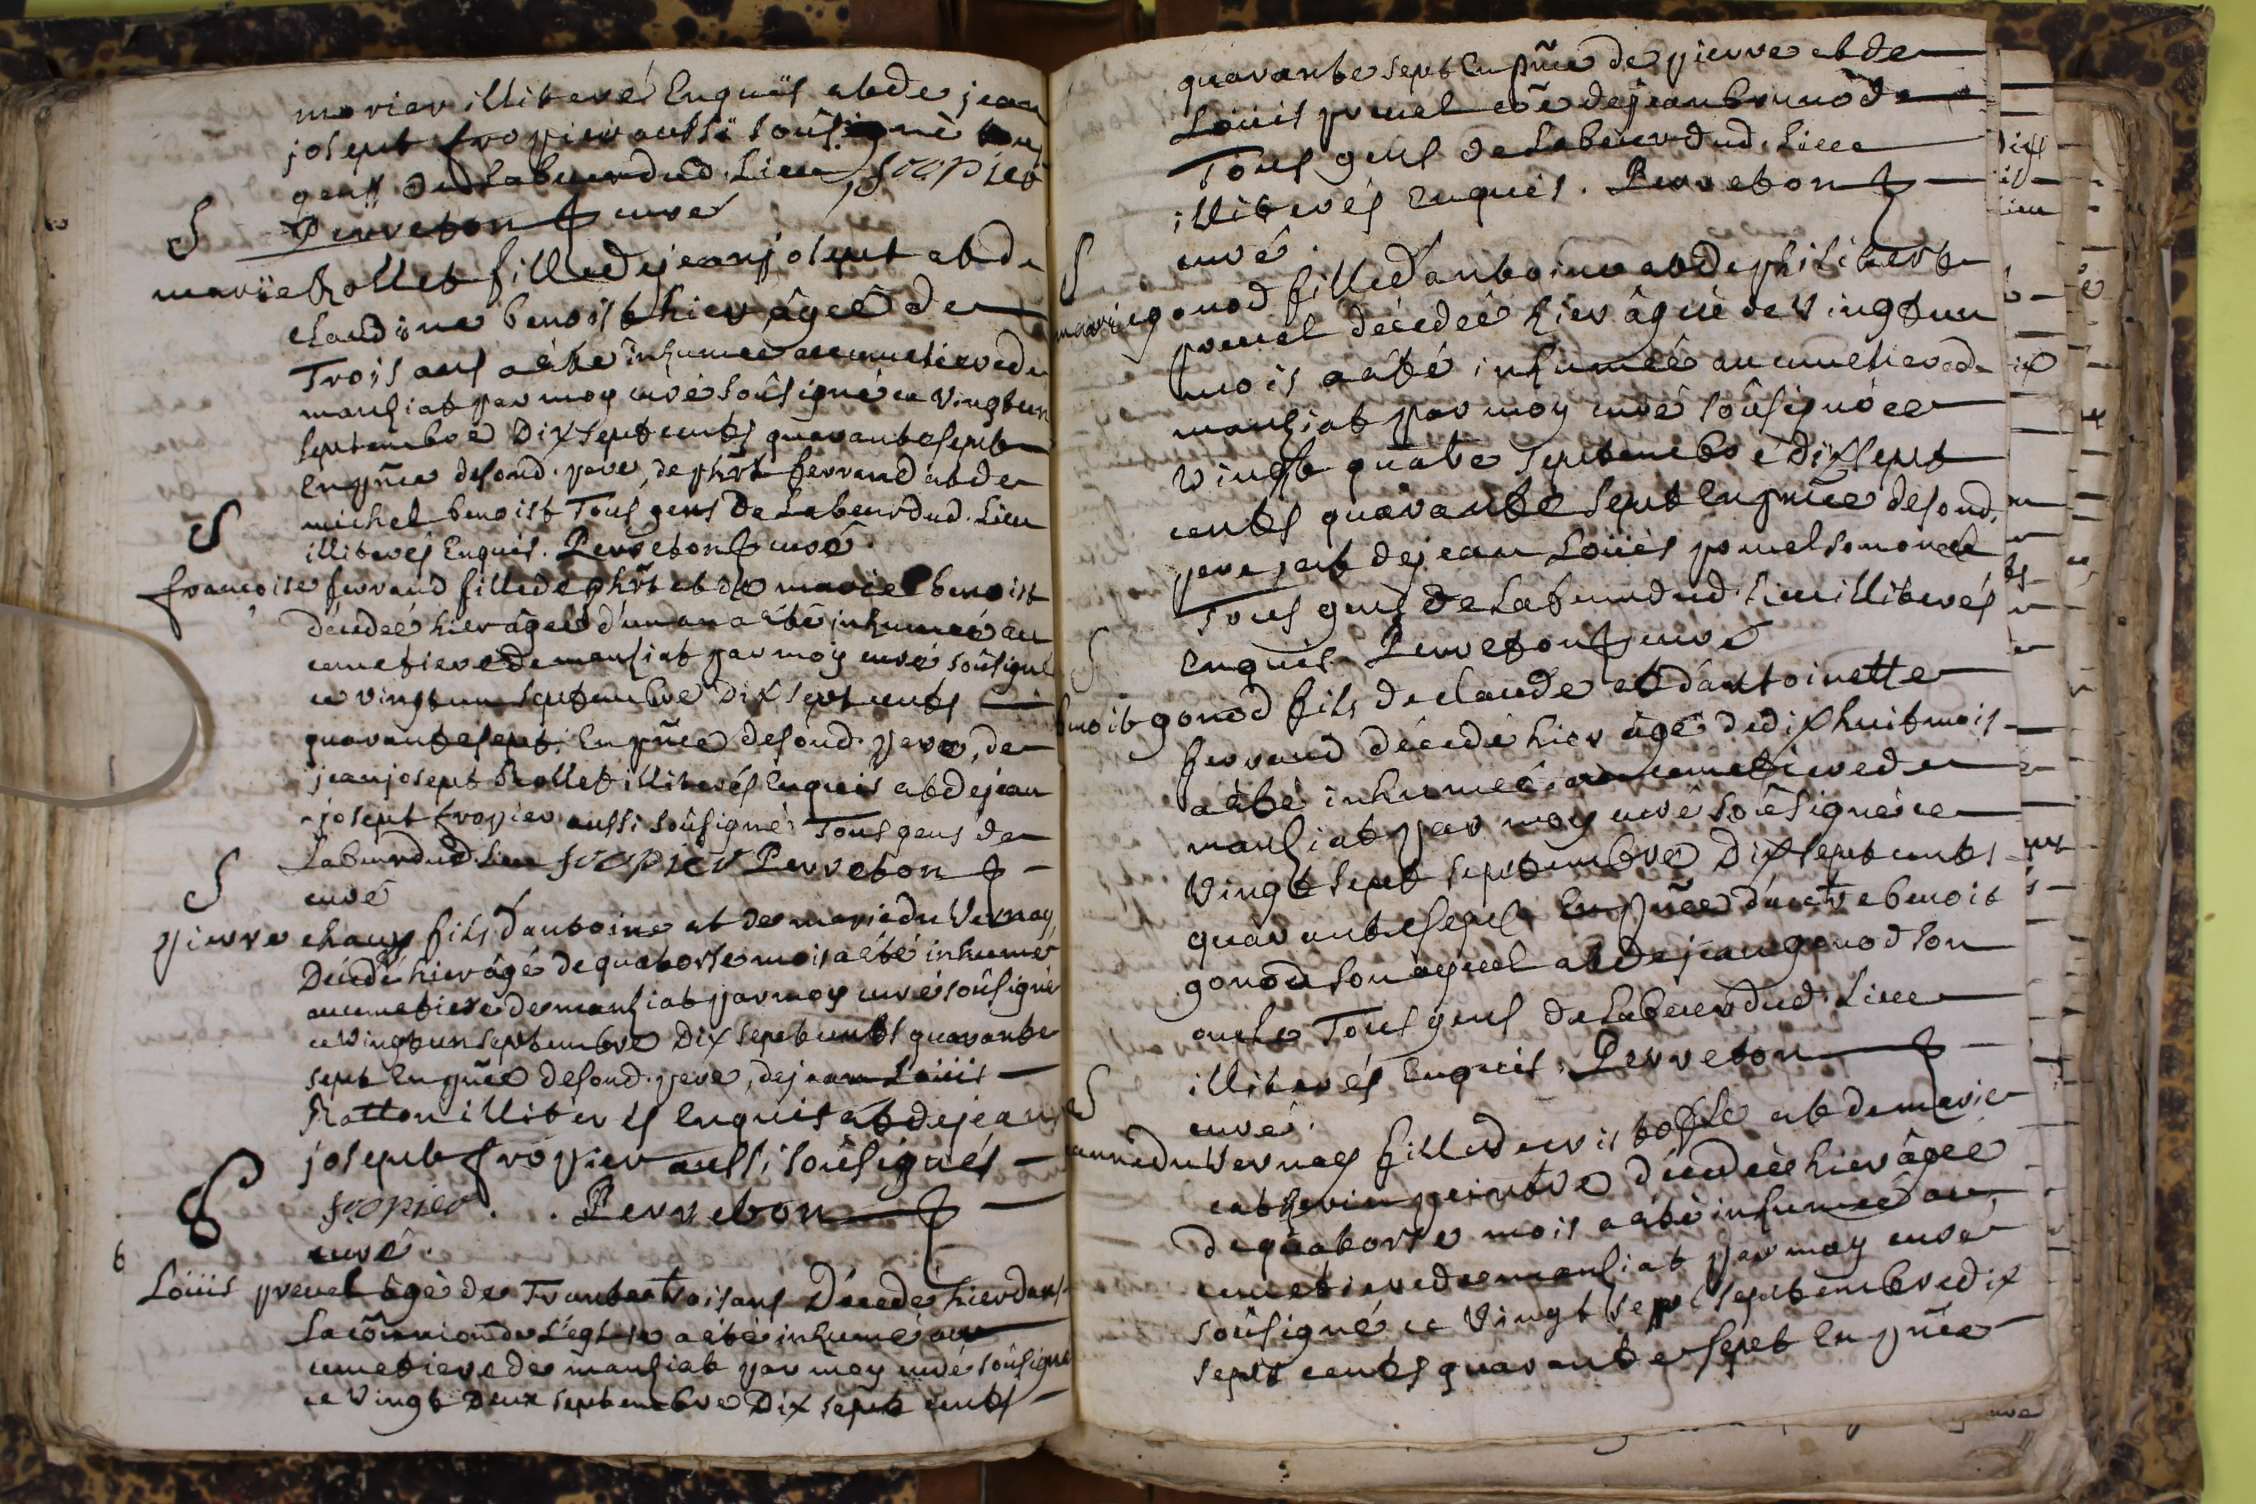 morier illiteré Enquis et de jean
josept fropier aussi soûsigné tous
gens de Labeur dud. Lieu fropier
S
Perreton curé
marie Rollet fille de jean josept et de
claudine benoist hier âgeé de
Trois ans a été inhumeé au cimetiere de
manziat par moy curé soûsigné ce Vingt un
septembre Dix sept cents quarante sept
En pñce desond. pere, de phrt ferrand et de
S michel benoist Tous gens de Labeur dud. Lieu
illiterés Enquis. Perreton curé.
françoise ferrand fille de phrt et de marie benoist
décedeé hier âgeé d'un an a été inhumeé au
cimetiere de manziat par moy curé soûsigné
ce vingt un septembre Dix sept cents
quarante sept. En pñce desond. pere, de
jean josept Rollet illiterés Enquis et de jean
josept fropier aussi soûsigné Tous gens de
S Labeur dud. Lieu fropier Perreton
curé
pierre chaux fils d'antoine et de marie du Vernay
Décedé hier âgé de quatorse mois a été inhumé
au cimetiere de manziat par moy curé soûsigné
ce Vingt un septembre Dix sept cents quarante
sept En pñce desond. pere, de jean Loüis
Ratton illiterés Enquis et de jean
josept fropier aussi soûsignés
fropier. . Perreton
curé.
6
Loüis pruel âgé de Trente trois ans Décedé hier dans
La cõmunion de L'eglise a été inhumé au
cimetiere de manziat par moy curé soûsigné
ce Vingt Deux septembre Dix sept cents
quarante sept En pñce de pierre et de
Loüis pruel et de jean brunod
Tous gens de Labeur dud. Lieu
illiterés Enquis. Perreton
S curé
marie gonod fille d'antoine et de philiberte
pruel décedeé hier âgeé de Vingt un
mois a été inhumeé au cimetiere de
manziat par moy curé soûsigné ce
vingt quatre septembre Dix sept
cents quarante sept En pñce desond.
pere, et de jean Loüis pruel son oncle
Tous gens de Labeur dud. Lieu illiterés
S Enquis Perreton curé
benoit gonod fils de claude et d'antoinette
ferrand décedé hier âgé de dix huit mois
a été inhumé au cimetiere de
manziat par moy curé soûsigné ce
Vingt sept septembre Dix sept cents
quarante sept. En pñce d'autre benoit
gonod son ayeul et de jean gonod son
oncle Tous gens de Labeur dud. Lieu
illiterés Enquis. Perreton
S curé.
anne du Vernay fille de et de marie
catherin peintre décedeé hier âgeé
de quatorse mois a été inhumeé au
cimetiere de manziat par moy curé
soûsigné ce Vingt sept septembre dix
sept cents quarante sept En pñce